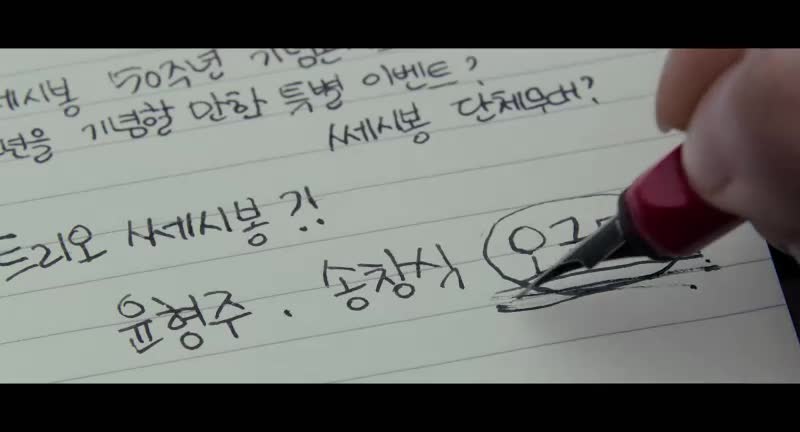 세시봉 50주년
년을 기념할 만한 특별 이벤트?
쎄시봉 단체무대?
트리오 쎄시봉?!
윤형주 · 송창식